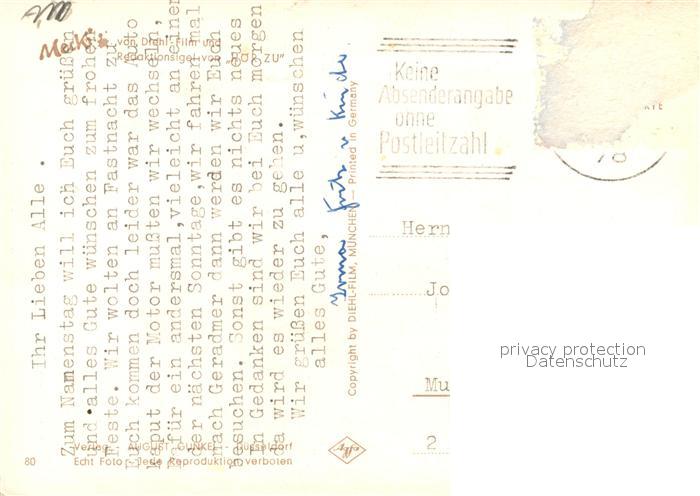 Mecki
von Diehl-Film und
Redaktionsigel von "HÖR ZU"
Ihr Lieben Alle .
Zum Namenstag will ich Euch grüßen
und alles Gute wünschen zum frohen
Feste. Wir wolten an Fastnacht zu
Euch kommen doch leider war das Auto
kaput der Motor mußten wir wechseln,
dafür ein andersmal, vieleicht an einer
der nächsten Sonntage, wir fahren mal
nach Geradmer dann werden wir Euch
besuchen. Sonst gibt es nichts neues
In Gedanken sind wir bei Euch morgen
da wird es wieder zu gehen.
Wir grüßen Euch alle u, wünschen
alles Gute,
Irma Fritz u Kinder
Copyright by DIEHL-FILM, MÜNCHEN — Printed in Germany
Verlag AUGUST GUNKEL Düsseldorf
80 Echt Foto Jede Reproduktion verboten
effy
Keine
Absenderangabe
ohne
Postleitzahl
78
Hern
Jo
Mu
2
privacy protection
Datenschutz